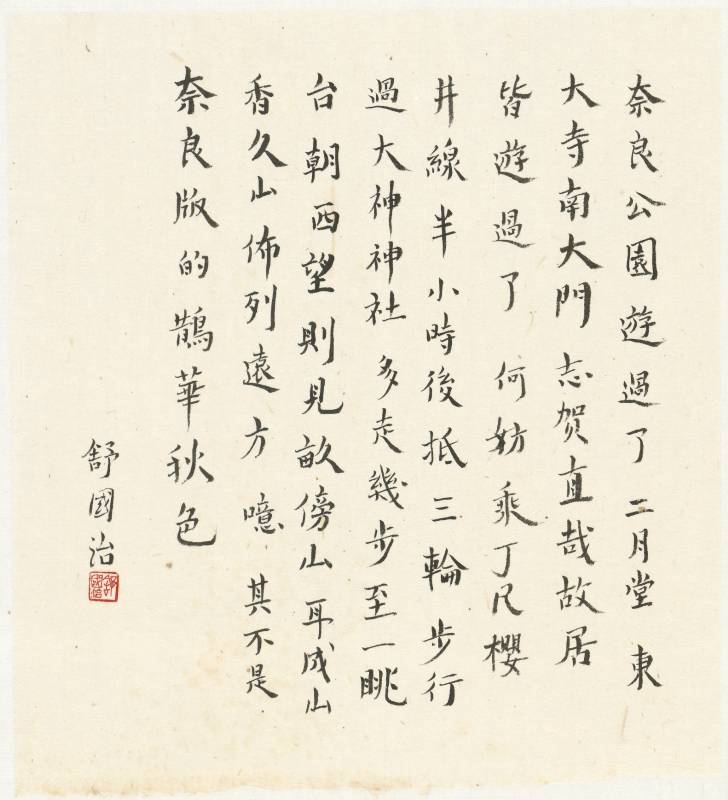 奈良公園遊過了二月堂東
大寺南大門志賀直哉故居
皆遊過了何妨乘丁尺櫻
井線半小時後抵三輪步行
過大神神社多走幾步至一眺
台朝西望則見畝傍山耳成山
香久山佈列遠方噫其不是
奈良版的鵲華秋色
舒國治